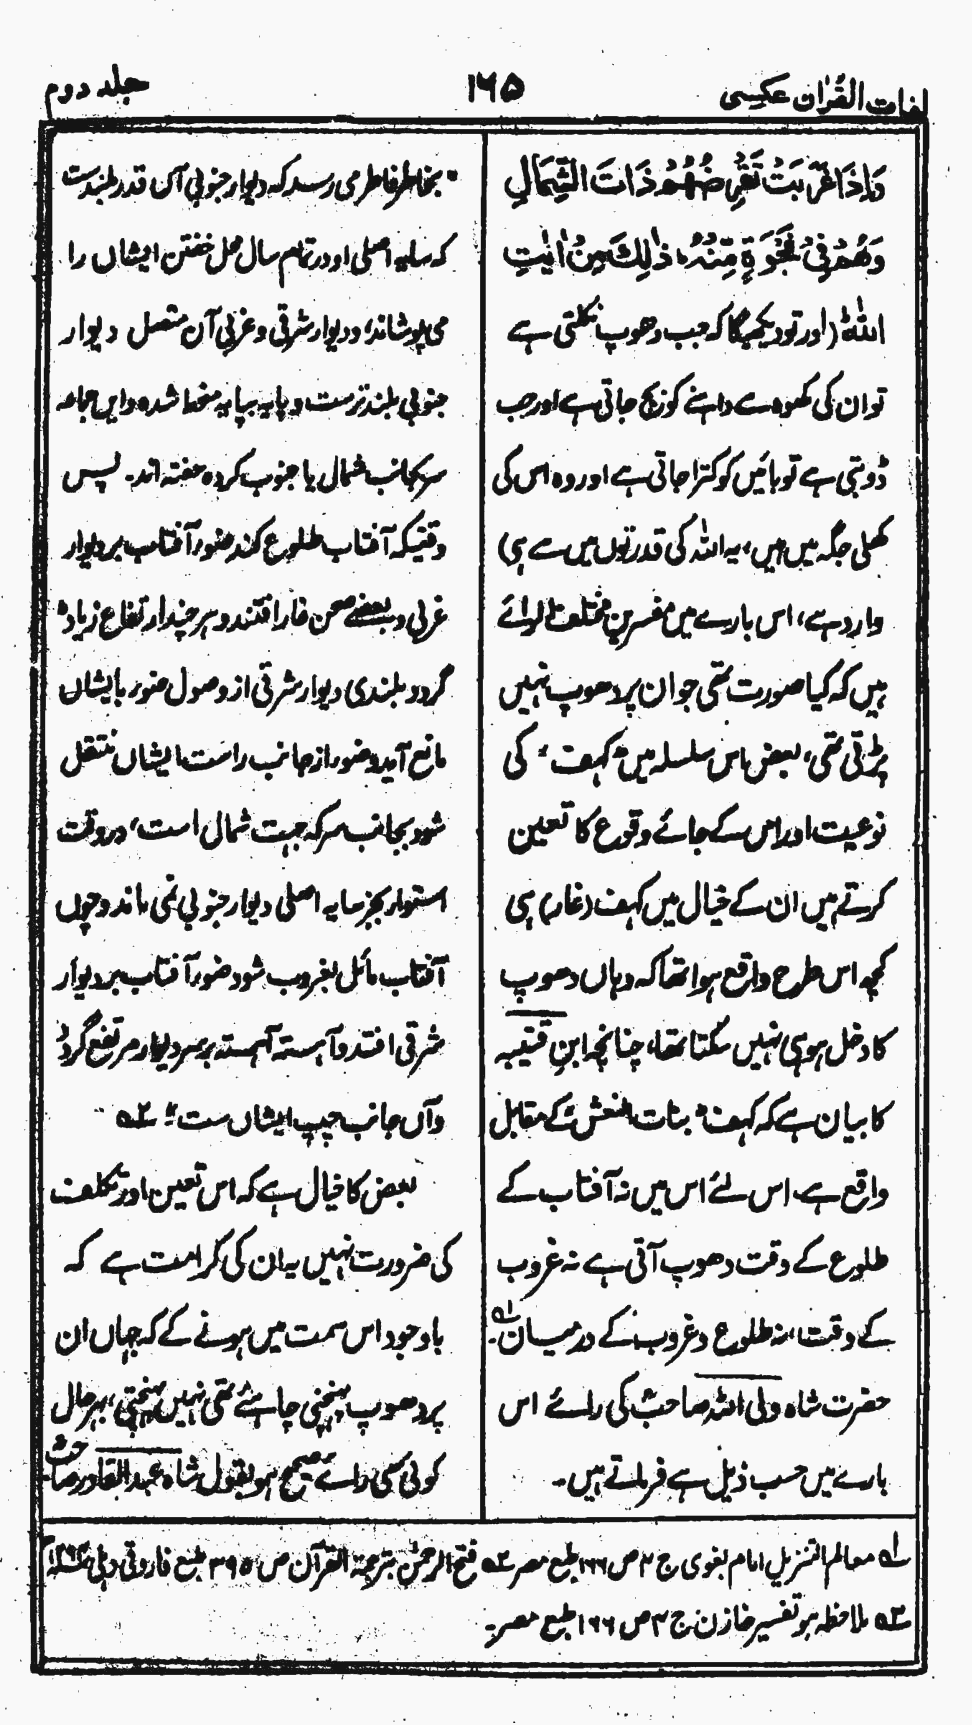 لغات القرآن عکسی
۱۶۵
جلد دوم
وَاِذَا غَرَبَتْ تَّقْرِضُهُمْ ذَاتَ الشِّمَالِ
وَهُمْ فِیْ فَجْوَةٍ مِّنْهُ، ذٰلِكَ مِنْ اٰیٰتِ
اللّٰهِ (اور تو دیکھیگا کہ جب دھوپ نکلتی ہے
تو ان کی کھوہ سے داہنے کو بچ جاتی ہے اور جب
ڈوبتی ہے تو بائیں کو کترا جاتی ہے اور وہ اس کی
کھلی جگہ میں ہیں، یہ اللہ کی قدرتوں میں سے ہی)
وارد ہے، اس بارے میں مفسرین مختلف الرائے
ہیں کہ کیا صورت تھی جو ان پر دھوپ نہیں
پڑتی تھی، بعض اس سلسلہ میں "کہف" کی
نوعیت اور اس کے جائے وقوع کا تعین
کرتے ہیں ان کے خیال میں کہف (غار) ہی
کچھ اس طرح واقع ہوا تھا کہ وہاں دھوپ
کا دخل ہو ہی نہیں سکتا تھا، چنانچہ ابن قتیبہ
کا بیان ہے کہ کہف "بنات النعش" کے مقابل
واقع ہے، اس لئے اس میں نہ آفتاب کے
طلوع کے وقت دھوپ آتی ہے نہ غروب
کے وقت، نہ طلوع و غروب کے درمیان۔ لہ
حضرت شاہ ولی اللہ صاحبؒ کی رائے اس
بارے میں حسب ذیل ہے فرماتے ہیں۔
" بخاطر فاطر می رسد کہ دیوار جنوبی آں قدر بلندست
کہ سایہ اصلی او در تمام سال محل خفتن ایشاں را
می پوشاند، و دیوار شرقی و غربی آن متصل دیوار
جنوبی بلند ترست و پایہ بپایہ منحط شدہ و ایں جماعہ
سر بجانب شمال یا جنوب کردہ خفتہ اند۔ پس
وقتیکہ آفتاب طلوع کند ضوء آفتاب بر دیوار
غربی و بعضے صحن غار افتد و ہر چند ارتفاع زیادہ
گردد بلندی دیوار شرقی از وصول ضوء بایشاں
مانع آید و ضوء از جانب راست ایشاں منتقل
شود بجانب سر کہ جہت شمال است، در وقت
استواء بجز سایہ اصلی دیوار جنوبی نمی ماند و چوں
آفتاب مائل بغروب شود ضوء آفتاب بر دیوار
شرقی افتد و آہستہ آہستہ بر سر دیوار مرتفع گردد
و آں جانب چپ ایشاں ست" ۲ہ
بعض کا خیال ہے کہ اس تعین اور تکلف
کی ضرورت نہیں یہ ان کی کرامت ہے کہ
باوجود اس سمت میں ہونے کے کہ جہاں ان
پر دھوپ پہنچنی چاہئے تھی نہیں پہنچتی، بہرحال
کوئی سی رائے صحیح ہو بقول شاہ عبدالقادر صاحبؒ
لہ معالم التنزیل امام بغوی ج ۴ ص ۱۶۶ طبع مصر ۲ہ فتح الرحمٰن بترجمۃ القرآن ص ۳۹۵ طبع فاروقی دہلی
۳ہ ملاحظہ ہو تفسیر خازن ج ۴ ص ۱۶۶ طبع مصر۔